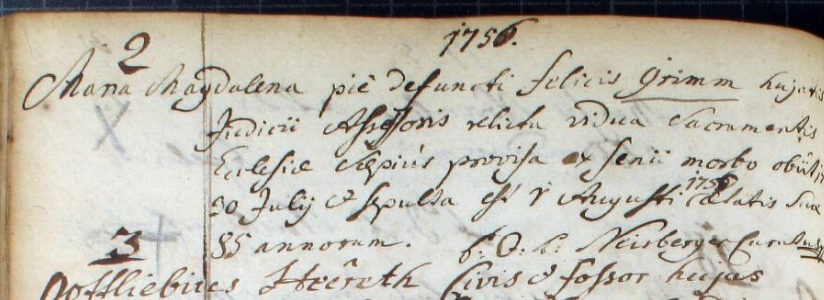 2 1756.
Maria Magdalena piè defuncti felicis Grimm hujatis
Judicii Assessoris relicta vidua Sacramentis
Ecclesiæ sæpius provisa ex senii morbo obiit
30 Julij et sepulta est Augusti 1756 ætatis suæ
85 annorum. Neisberger Curatus
3
Gottliebius civis et fossor hujus